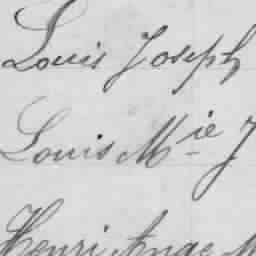 Louis Joseph
Louis Mie J
Henri Ange M